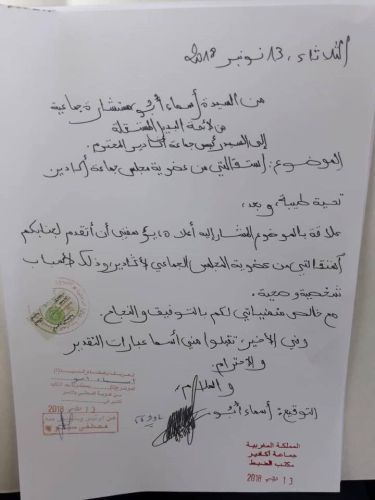 الثلاثاء، 13 نونبر 2018
من السيدة أسماء أبو مستشارة جماعية
من لائحة البديل المستقلة
إلى السيد رئيس جماعة أكادير المحترم.
الموضوع: استقالتي من عضوية مجلس جماعة أكادير
تحية طيبة، و بعد،
علاقة بالموضوع المشار إليه أعلاه يؤسفني أن أتقدم لجنابكم
باستقالتي من عضوية المجلس الجماعي لأكادير وذلك لأسباب
شخصية و صحية.
مع خالص متمنياتي لكم بالتوفيق و النجاح.
وفي الأخير، تقبلوا مني أسما عبارات التقدير
و الاحترام.
و السلام،
التوقيع: أسماء
13 نونبر 2018
مصطفى
المملكة المغربية
جماعة أكادير
مكتب الضبط
13 نونبر 2018